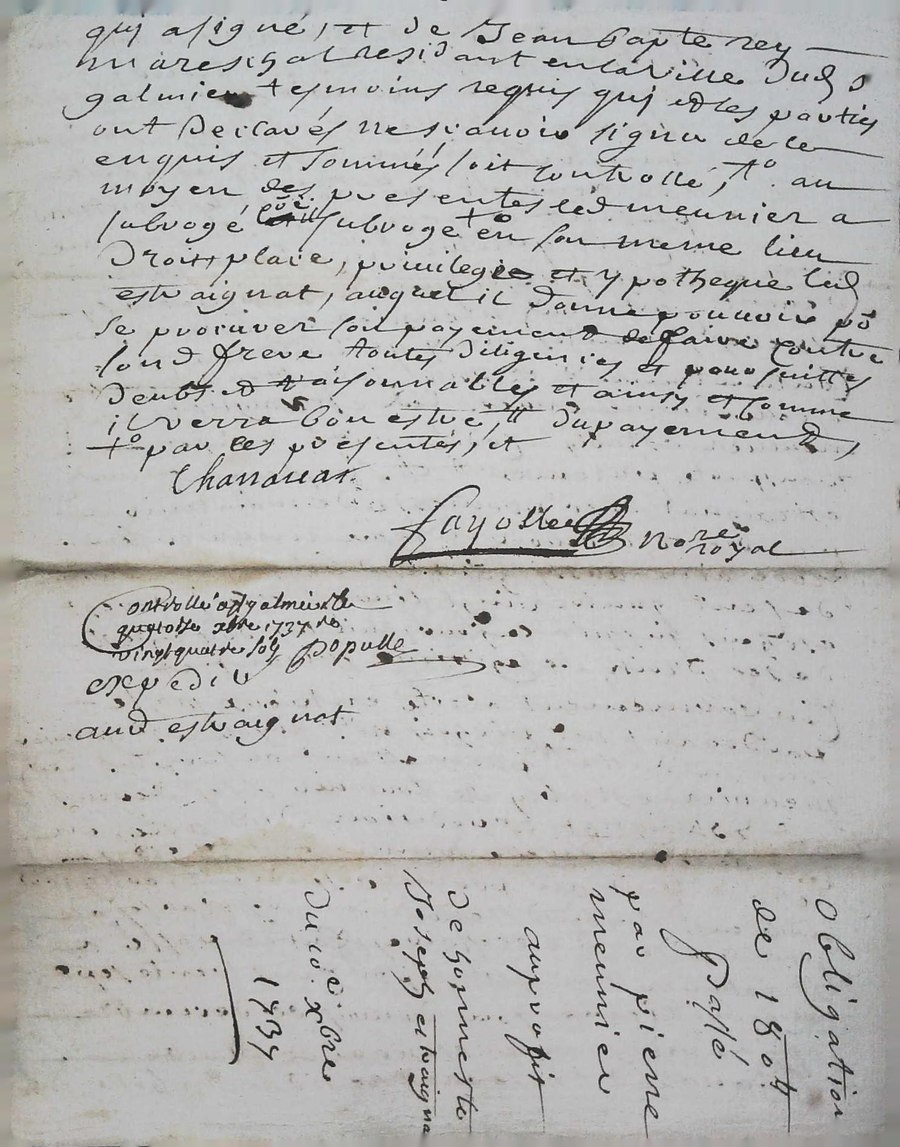 qui a signé, et de Jean bapte rey
mareschal residant en la Ville dud St
galmier tesmoins requis qui et les parties
ont declarés ne scavoir signer de ce
enquis et sommés soit controllé, +o au
moyen des presentes led meunier a
subrogé subroge +o en son meme lieu
Droit, place, privilegie et ypotheque led
estraignat, auquel il donne pouvoir po
se procurer son payement et faire contre
sond frere toutes diligences et poursuittes
deubt et raisonnables et ainsy et comme
il verra bon estre, dupayement
+o par ces presentes, et
Chanauat
Fayolle Nore royal
Controllé a St galmier le
quatorse xbre 1737 re
vingt quatre sols Populle
expedié
aud estraignat
Obligation
de 180 lt
Passé
par pierre
meunier
au profit
de honneste
Joseph estraigna
du 10e xbre
1737